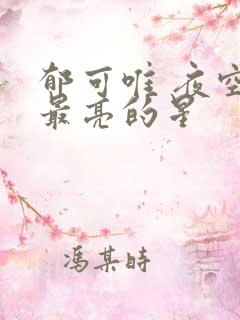 郁可唯 夜空
最亮的星
馮某時